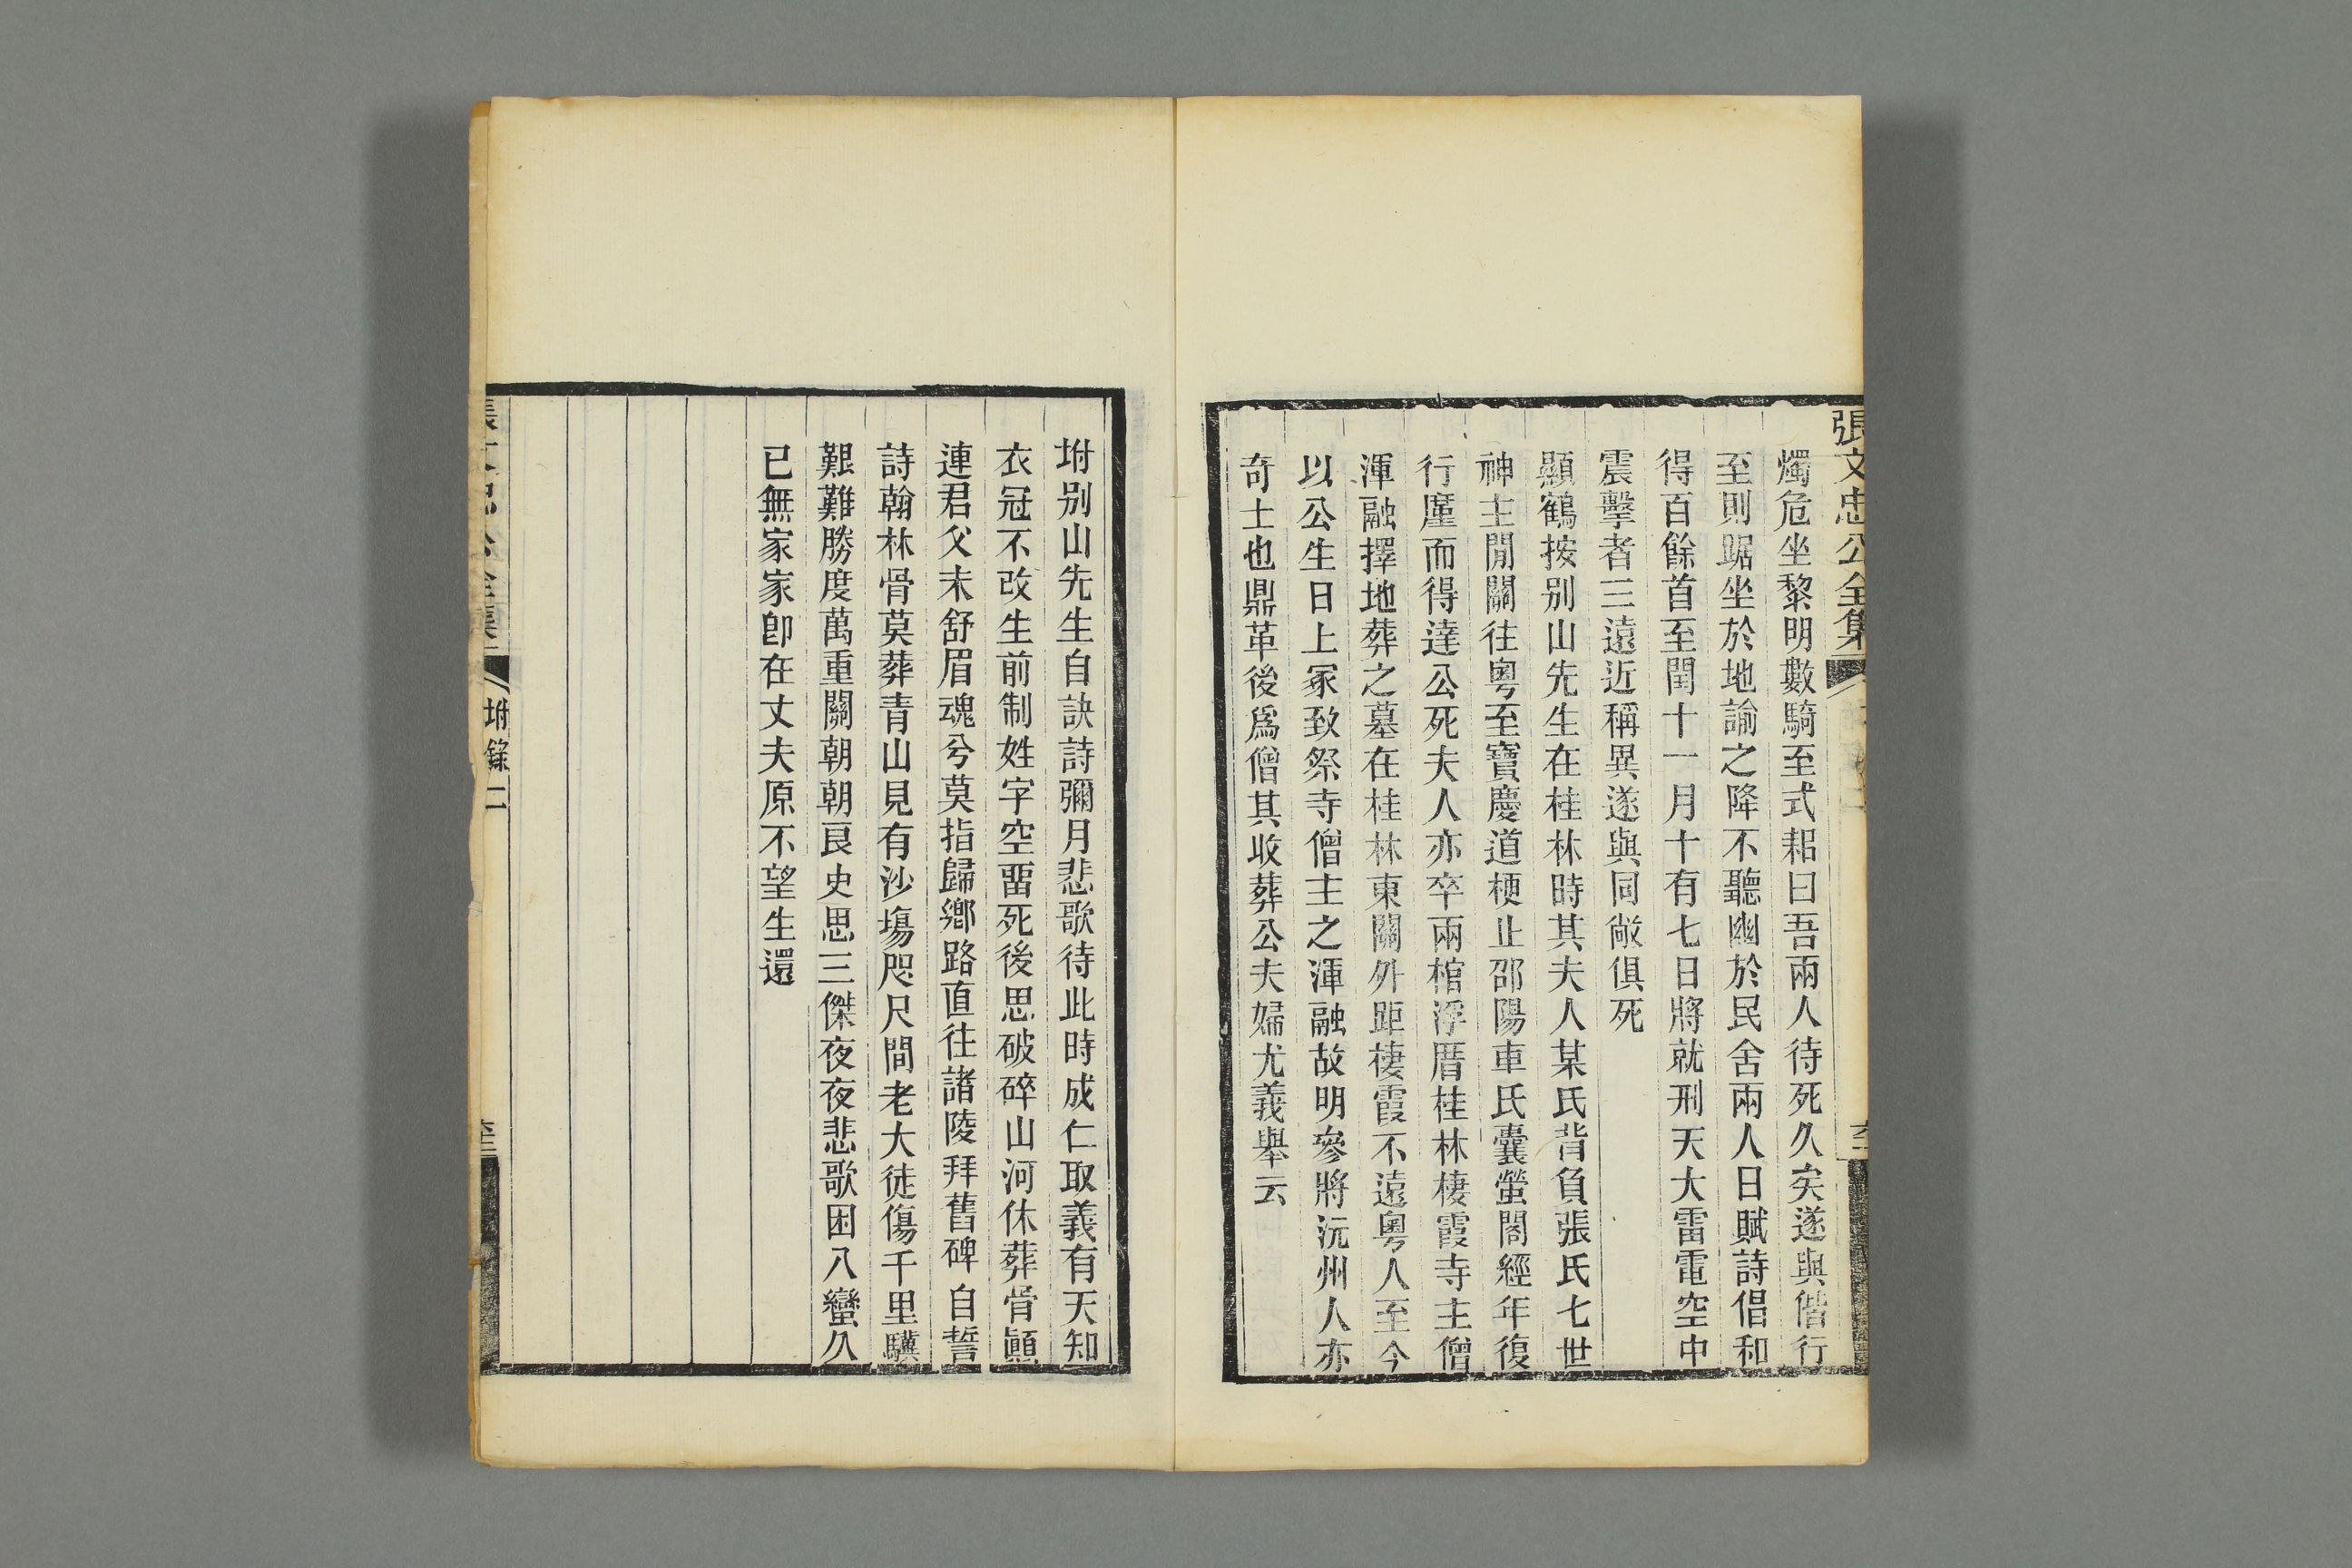 張文忠公全集
燭危坐黎明數騎至式耜曰吾兩人待死久矣遂與偕行
至則踞坐於地諭之降不聽幽於民舍兩人日賦詩倡和
得百餘首至閏十一月十有七日將就刑天大雷電空中
震擊者三遠近稱異遂與同敞俱死
顯鶴按别山先生在桂林時其夫人某氏背負張氏七世
神主閒關往粤至寶慶道梗止邵陽車氏囊螢閣經年復
行廑而得達公死夫人亦卒兩棺浮厝桂林棲霞寺主僧
渾融擇地葬之墓在桂林東關外距棲霞不遠粤人至今
以公生日上冢致祭寺僧主之渾融故明參將沅州人亦
奇士也鼎革後爲僧其收葬公夫婦尤義舉云
坿别山先生自訣詩彌月悲歌待此時成仁取義有天知
衣冠不改生前制姓字空畱死後思破碎山河休葬骨顚
連君父未舒眉魂兮莫指歸鄉路直往諸陵拜舊碑自誓
詩翰林骨莫葬青山見有沙塲咫尺間老大徒傷千里驥
艱難勝度萬重關朝朝良史思三傑夜夜悲歌困八蠻久
已無家家卽在丈夫原不望生還
坿錄二